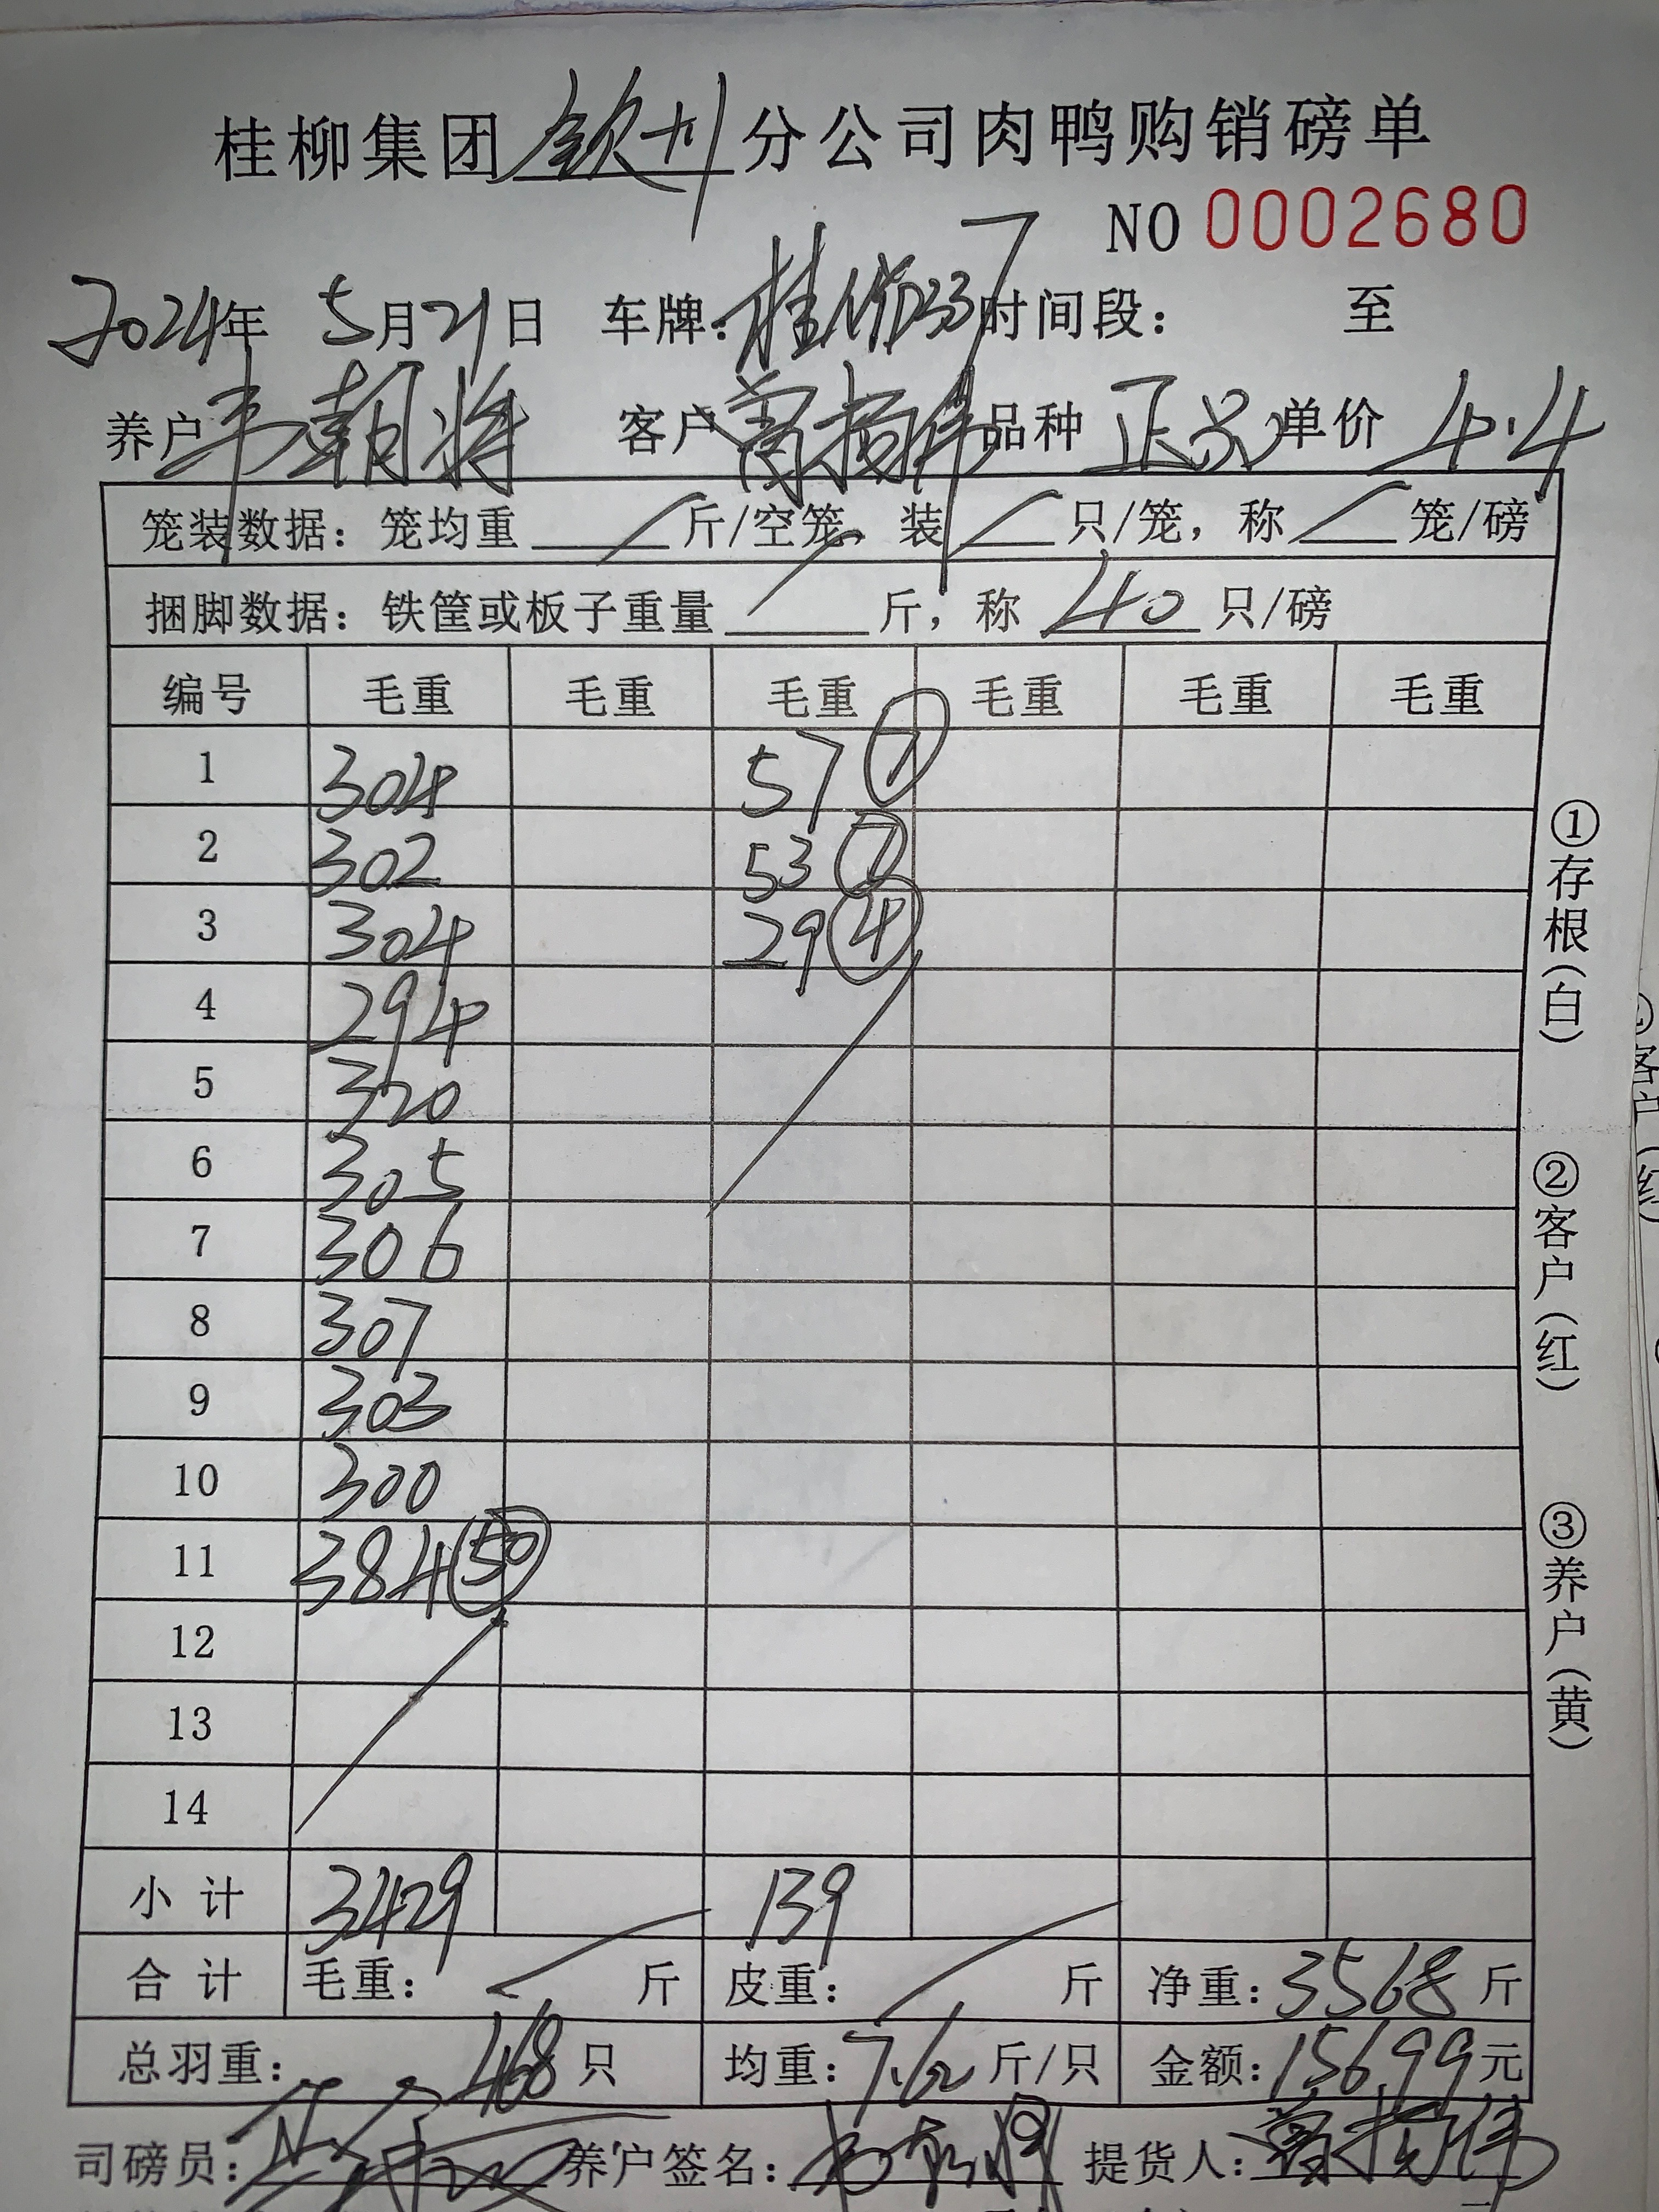 桂柳集团钦州分公司肉鸭购销磅单
NO 0002680
2024年 5月21日 车牌: 桂 时间段: 至
养户 韦朝将 客户 曾扬伟 品种 正品 单价 4.4
笼装数据: 笼均重 斤/空笼, 装 只/笼, 称 笼/磅
捆脚数据: 铁筐或板子重量 斤, 称 40 只/磅
编号 毛重 毛重 毛重 毛重 毛重 毛重
1 304 57 ⑦
2 302 53 ⑦
3 304 29 ④
4 294
5 320
6 305
7 306
8 307
9 303
10 300
11 384 ㊿
12
13
14
小计 3429 139
合计 毛重: 斤 皮重: 斤 净重: 3568 斤
总羽重: 468 只 均重: 7.62 斤/只 金额: 15699 元
司磅员: 养户签名: 提货人: 曾扬伟
①存根(白)
②客户(红)
③养户(黄)